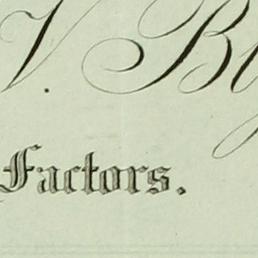 V. B
Factors.